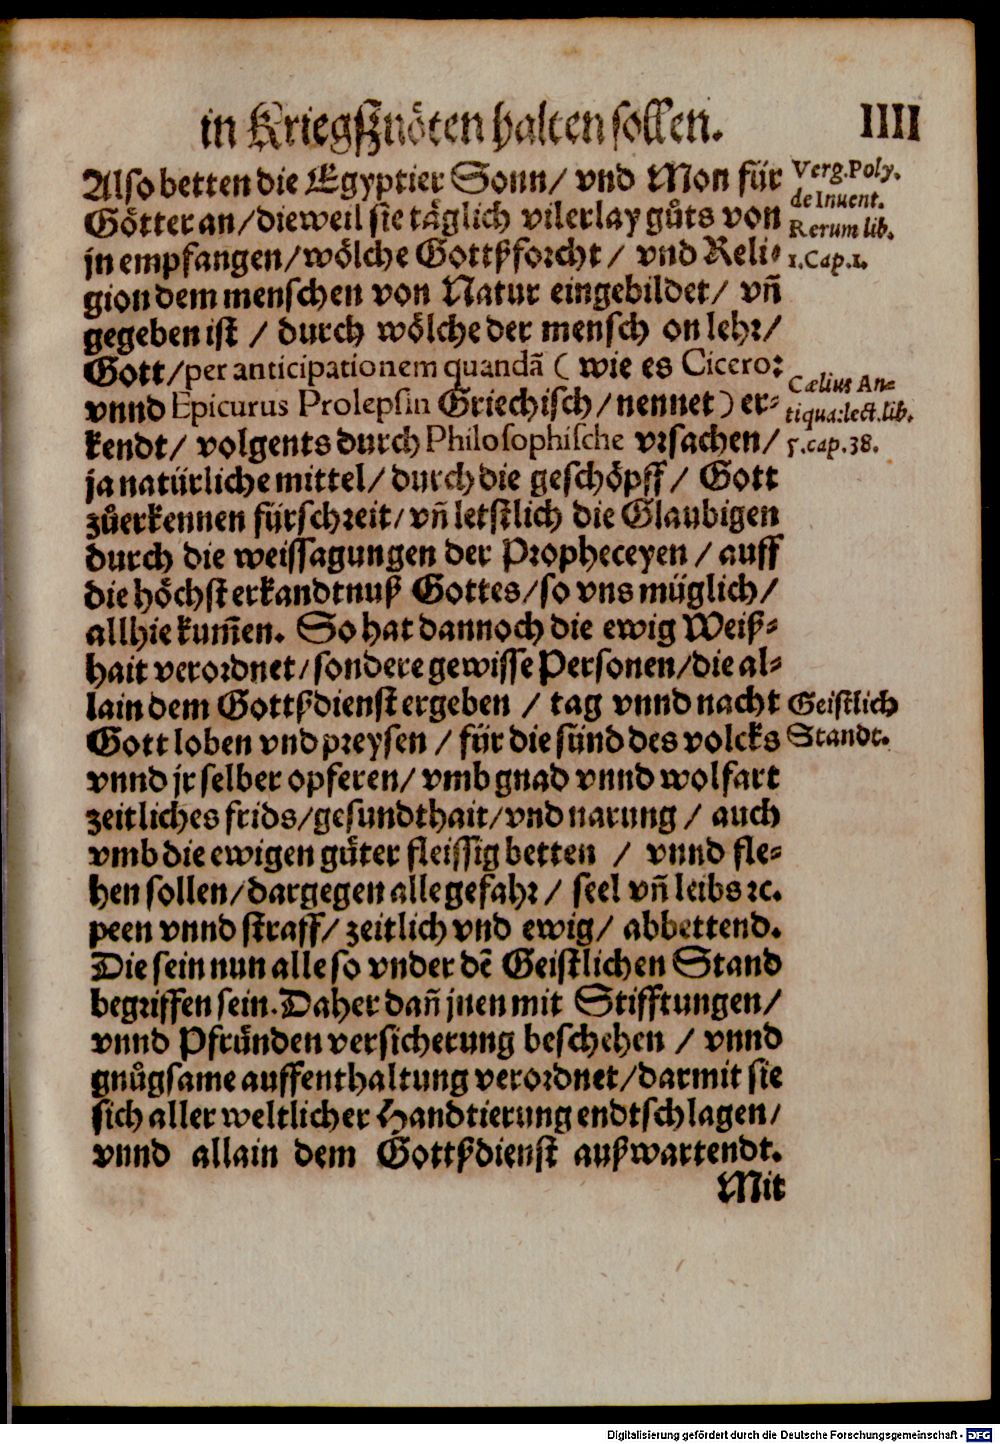 in Kriegßnöten halten sollen.
IIII
Also betten die Egyptier Sonn/ vnd Mon für
Götter an/ dieweil sie täglich vilerlay gůts von
jn empfangen/ wölche Gottßforcht/ vnd Reli⸗
gion dem menschen von Natur eingebildet/ vn̄
gegeben ist / durch wölche der mensch on lehr/
Gott/ per anticipationem quandã ( wie es Cicero:
vnnd Epicurus Prolepsin Griechisch/ nennet) er⸗
kendt/ volgents durch Philosophische vrsachen/
ja natürliche mittel/ durch die geschöpff/ Gott
zůerkennen fürschreit/ vn̄ letstlich die Glaubigen
durch die weissagungen der Propheceyen / auff
die höchst erkandtnuß Gottes/ so vns müglich/
allhie kum̄en. So hat dannoch die ewig Weiß⸗
hait verordnet/ sondere gewisse Personen/ die al⸗
lain dem Gottßdienst ergeben / tag vnnd nacht
Gott loben vnd preysen / für die sünd des volcks
vnnd jr selber opferen/ vmb gnad vnnd wolfart
zeitliches frids/ gesundthait/ vnd narung / auch
vmb die ewigen güter fleissig betten / vnnd fle⸗
hen sollen/ dargegen alle gefahr / seel vn̄ leibs ꝛc.
peen vnnd straff/ zeitlich vnd ewig/ abbettend.
Die sein nun alle so vnder dẽ Geistlichen Stand
begriffen sein. Daher dan̄ jnen mit Stifftungen/
vnnd Pfründen versicherung beschehen / vnnd
gnůgsame auffenthaltung verordnet/ darmit sie
sich aller weltlicher Handtierung endtschlagen/
vnnd allain dem Gottßdienst außwartendt.
Mit
Verg. Poly.
de Inuent.
Rerum lib.
1. Cap. 1.
Cælius An⸗
tiqua: lect. lib.
5. cap. 38.
Geistlich
Standt.
Digitalisierung gefördert durch die Deutsche Forschungsgemeinschaft - DFG